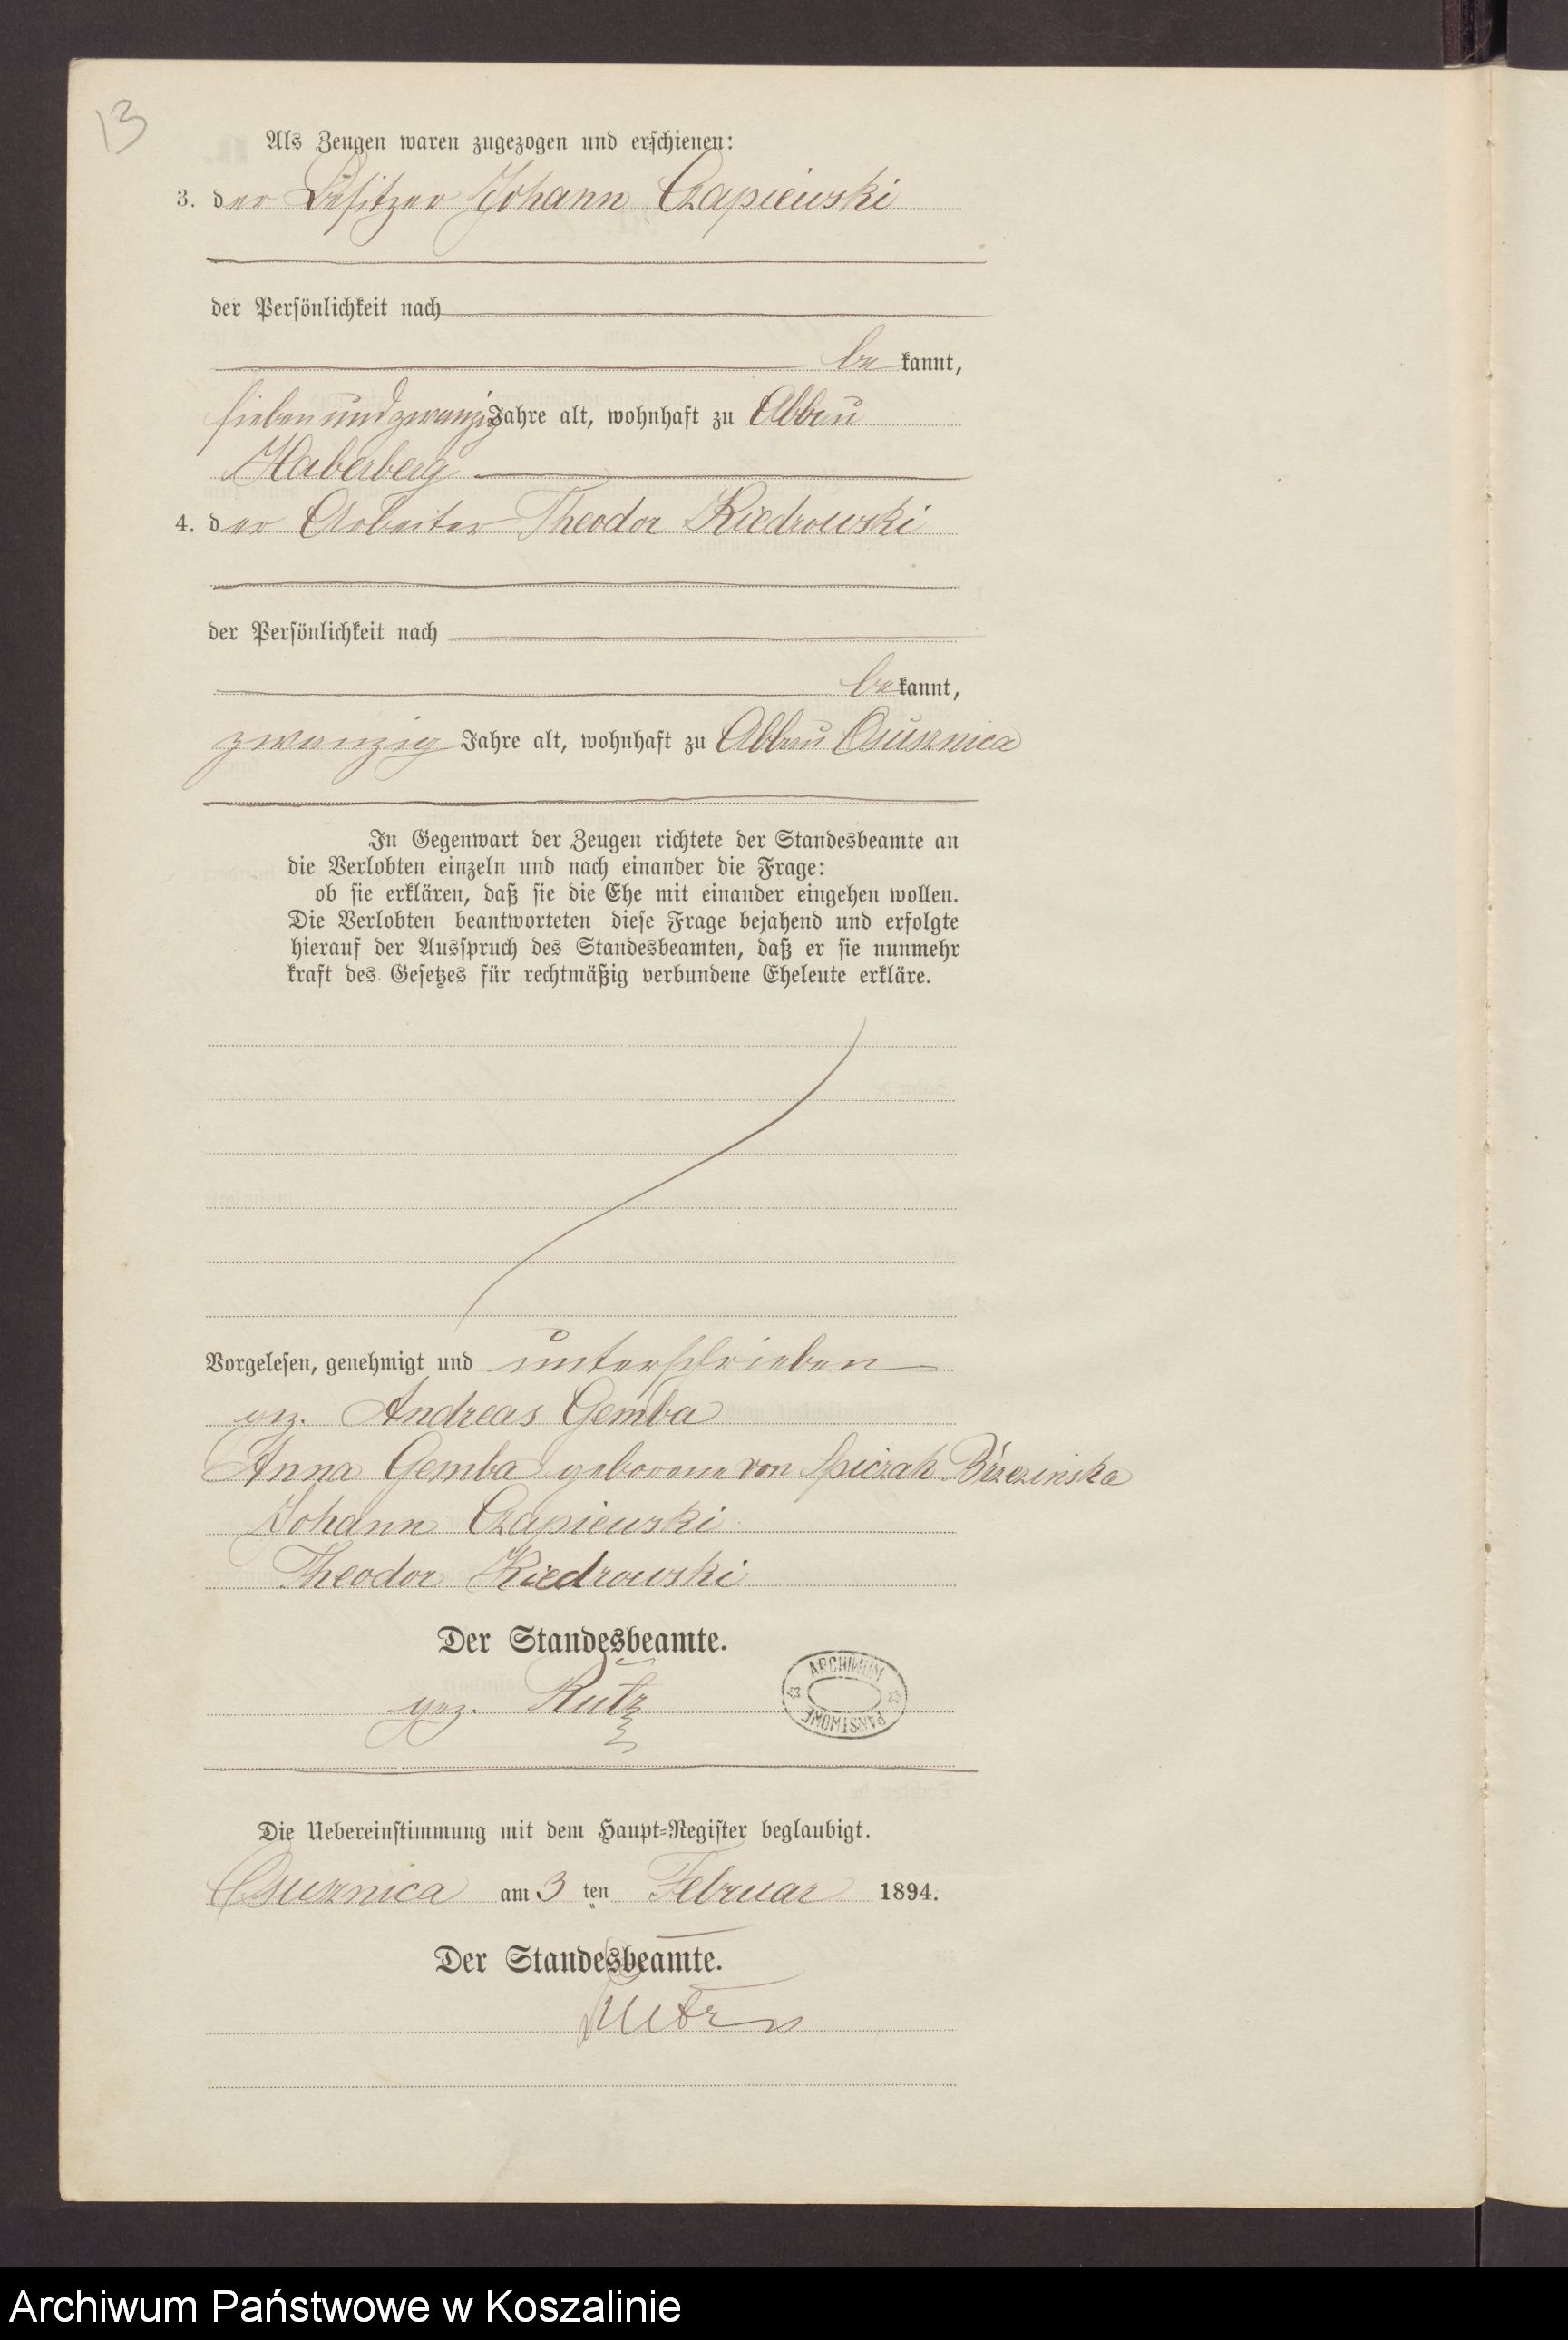 13
Als Zeugen waren zugezogen und erschienen:
3. der Besitzer Johann Czapiewski
der Persönlichkeit nach
be kannt,
siebenundzwanzig Jahre alt, wohnhaft zu Abbau
Haberberg
4. der Arbeiter Theodor Kiedrowski
der Persönlichkeit nach
be kannt,
zwanzig Jahre alt, wohnhaft zu Abbau Osusznica
In Gegenwart der Zeugen richtete der Standesbeamte an
die Verlobten einzeln und nach einander die Frage:
ob sie erklären, daß sie die Ehe mit einander eingehen wollen.
Die Verlobten beantworteten diese Frage bejahend und erfolgte
hierauf der Ausspruch des Standesbeamten, daß er sie nunmehr
kraft des Gesetzes für rechtmäßig verbundene Eheleute erkläre.
Vorgelesen, genehmigt und unterschrieben
gez. Andreas Gemba
Anna Gemba geborene von Spiczak Brzezinska
Johann Czapiewski
Theodor Kiedrowski
Der Standesbeamte.
gez. Rutz
ARCHIWUM PAŃSTWOWE
Die Uebereinstimmung mit dem Haupt-Register beglaubigt.
Osusznica am 3 ten Februar 1894.
Der Standesbeamte.
Rutz
Archiwum Państwowe w Koszalinie